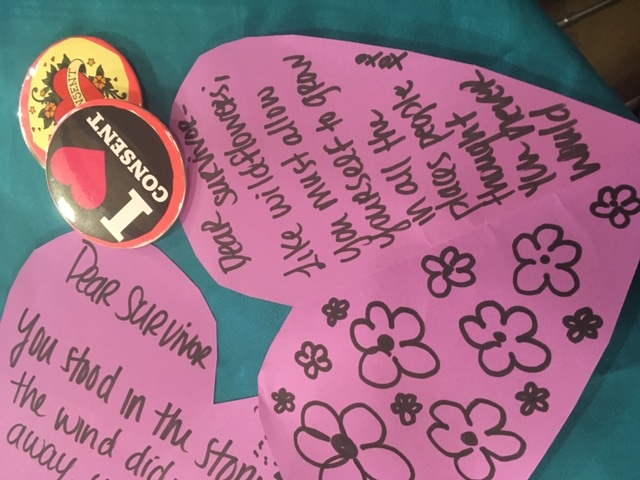 Dear Survivor
You stand in the storm
the wind did
away
I ❤ CONSENT
NSENT
Dear Survivor-
Like wildflowers;
you must allow
yourself to grow
in all the
places people
thought
you never
would
xoxo